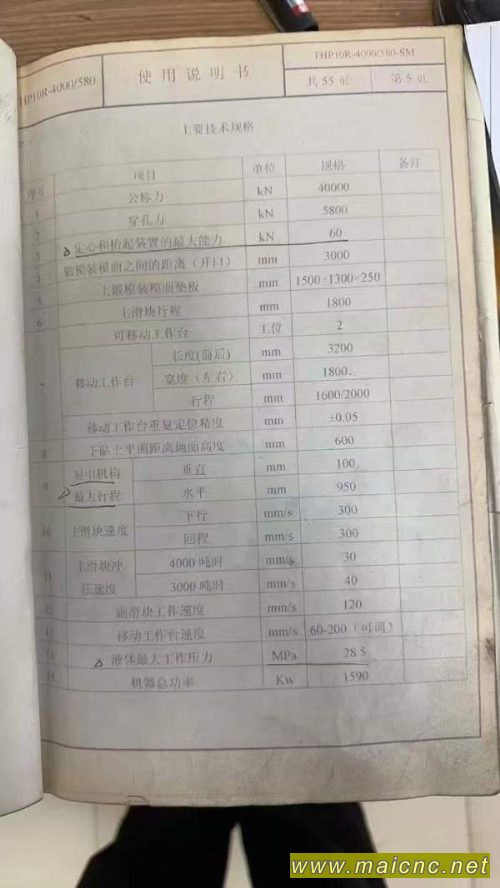 THP10R-4000/580 使用说明书 THP10R-4000/580-SM
共 55 页 第 5 页
主要技术规格
序号 项目 单位 规格 备注
1 公称力 kN 40000
2 穿孔力 kN 5800
3 定心和抬起装置的最大能力 kN 60
4 锻模装模面之间的距离（开口） mm 3000
5 上锻模装模面垫板 mm 1500×1300×250
6 上滑块行程 mm 1800
可移动工作台 工位 2
移动工作台 长度(前后) mm 3200
宽度（左右） mm 1800
行程 mm 1600/2000
移动工作台重复定位精度 mm ±0.05
8 下砧上平面距离地面高度 mm 600
9 对中机构最大行程 垂直 mm 100
水平 mm 950
10 上滑块速度 下行 mm/s 300
回程 mm/s 300
11 上滑块冲压速度 4000 吨时 mm/s 30
3000 吨时 mm/s 40
12 副滑块工作速度 mm/s 120
13 移动工作台速度 mm/s 60-200（可调）
14 液体最大工作压力 MPa 28.5
15 机器总功率 Kw 1590
www.maicnc.net